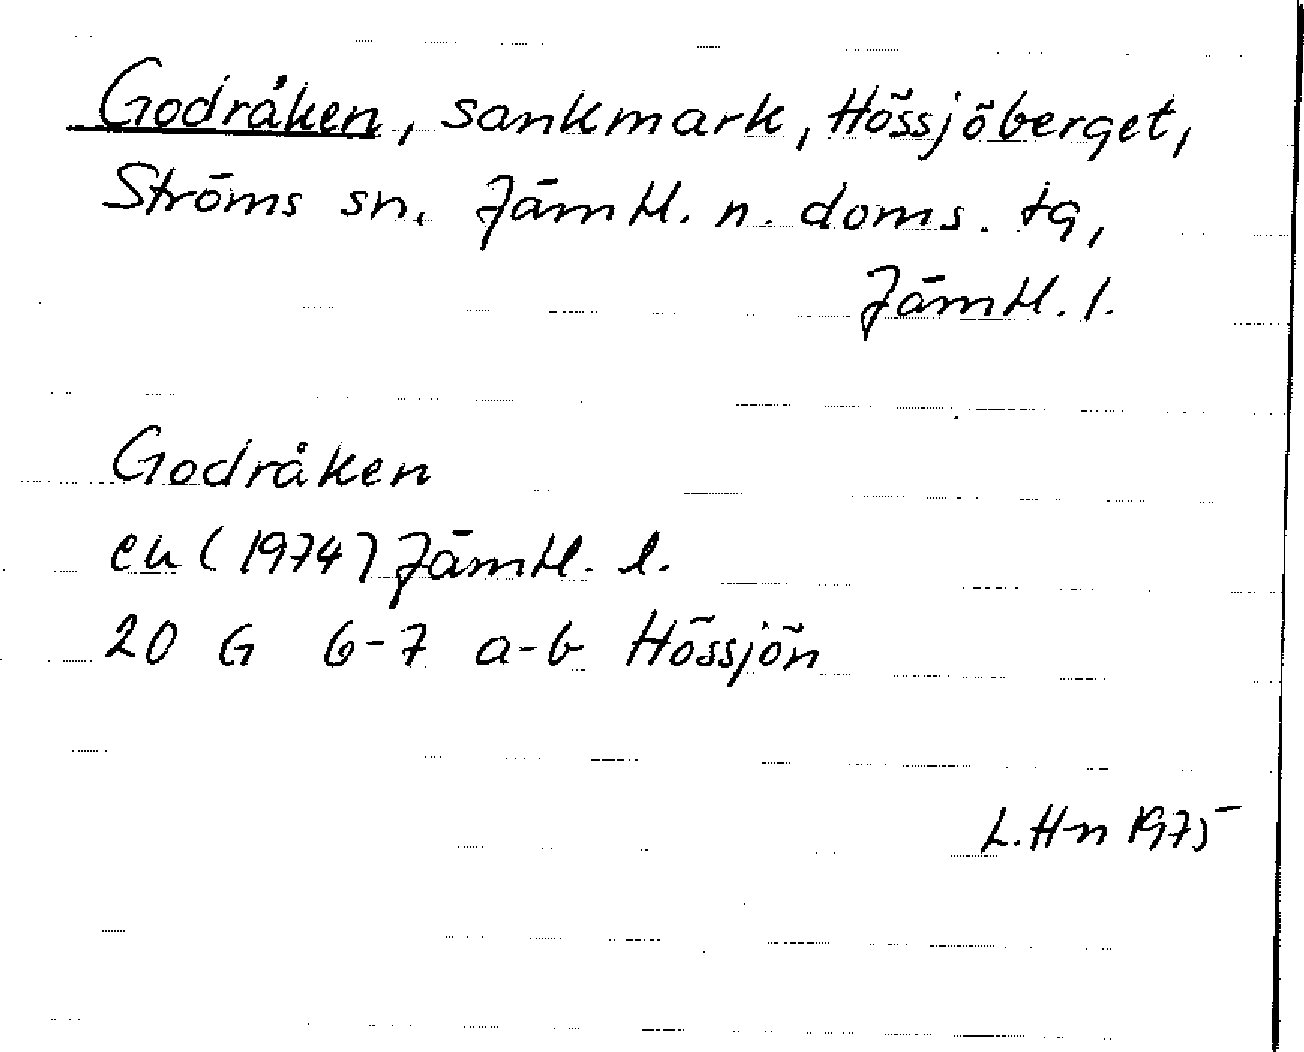 Godråken, sankmark, Hössjöberget,
Ströms sn. Jämtl. n. doms. tg,
Jämtl. l.
Godråken
ek (1974) Jämtl. l.
20 G 6-7 a-b Hössjön
L.H-n 1975